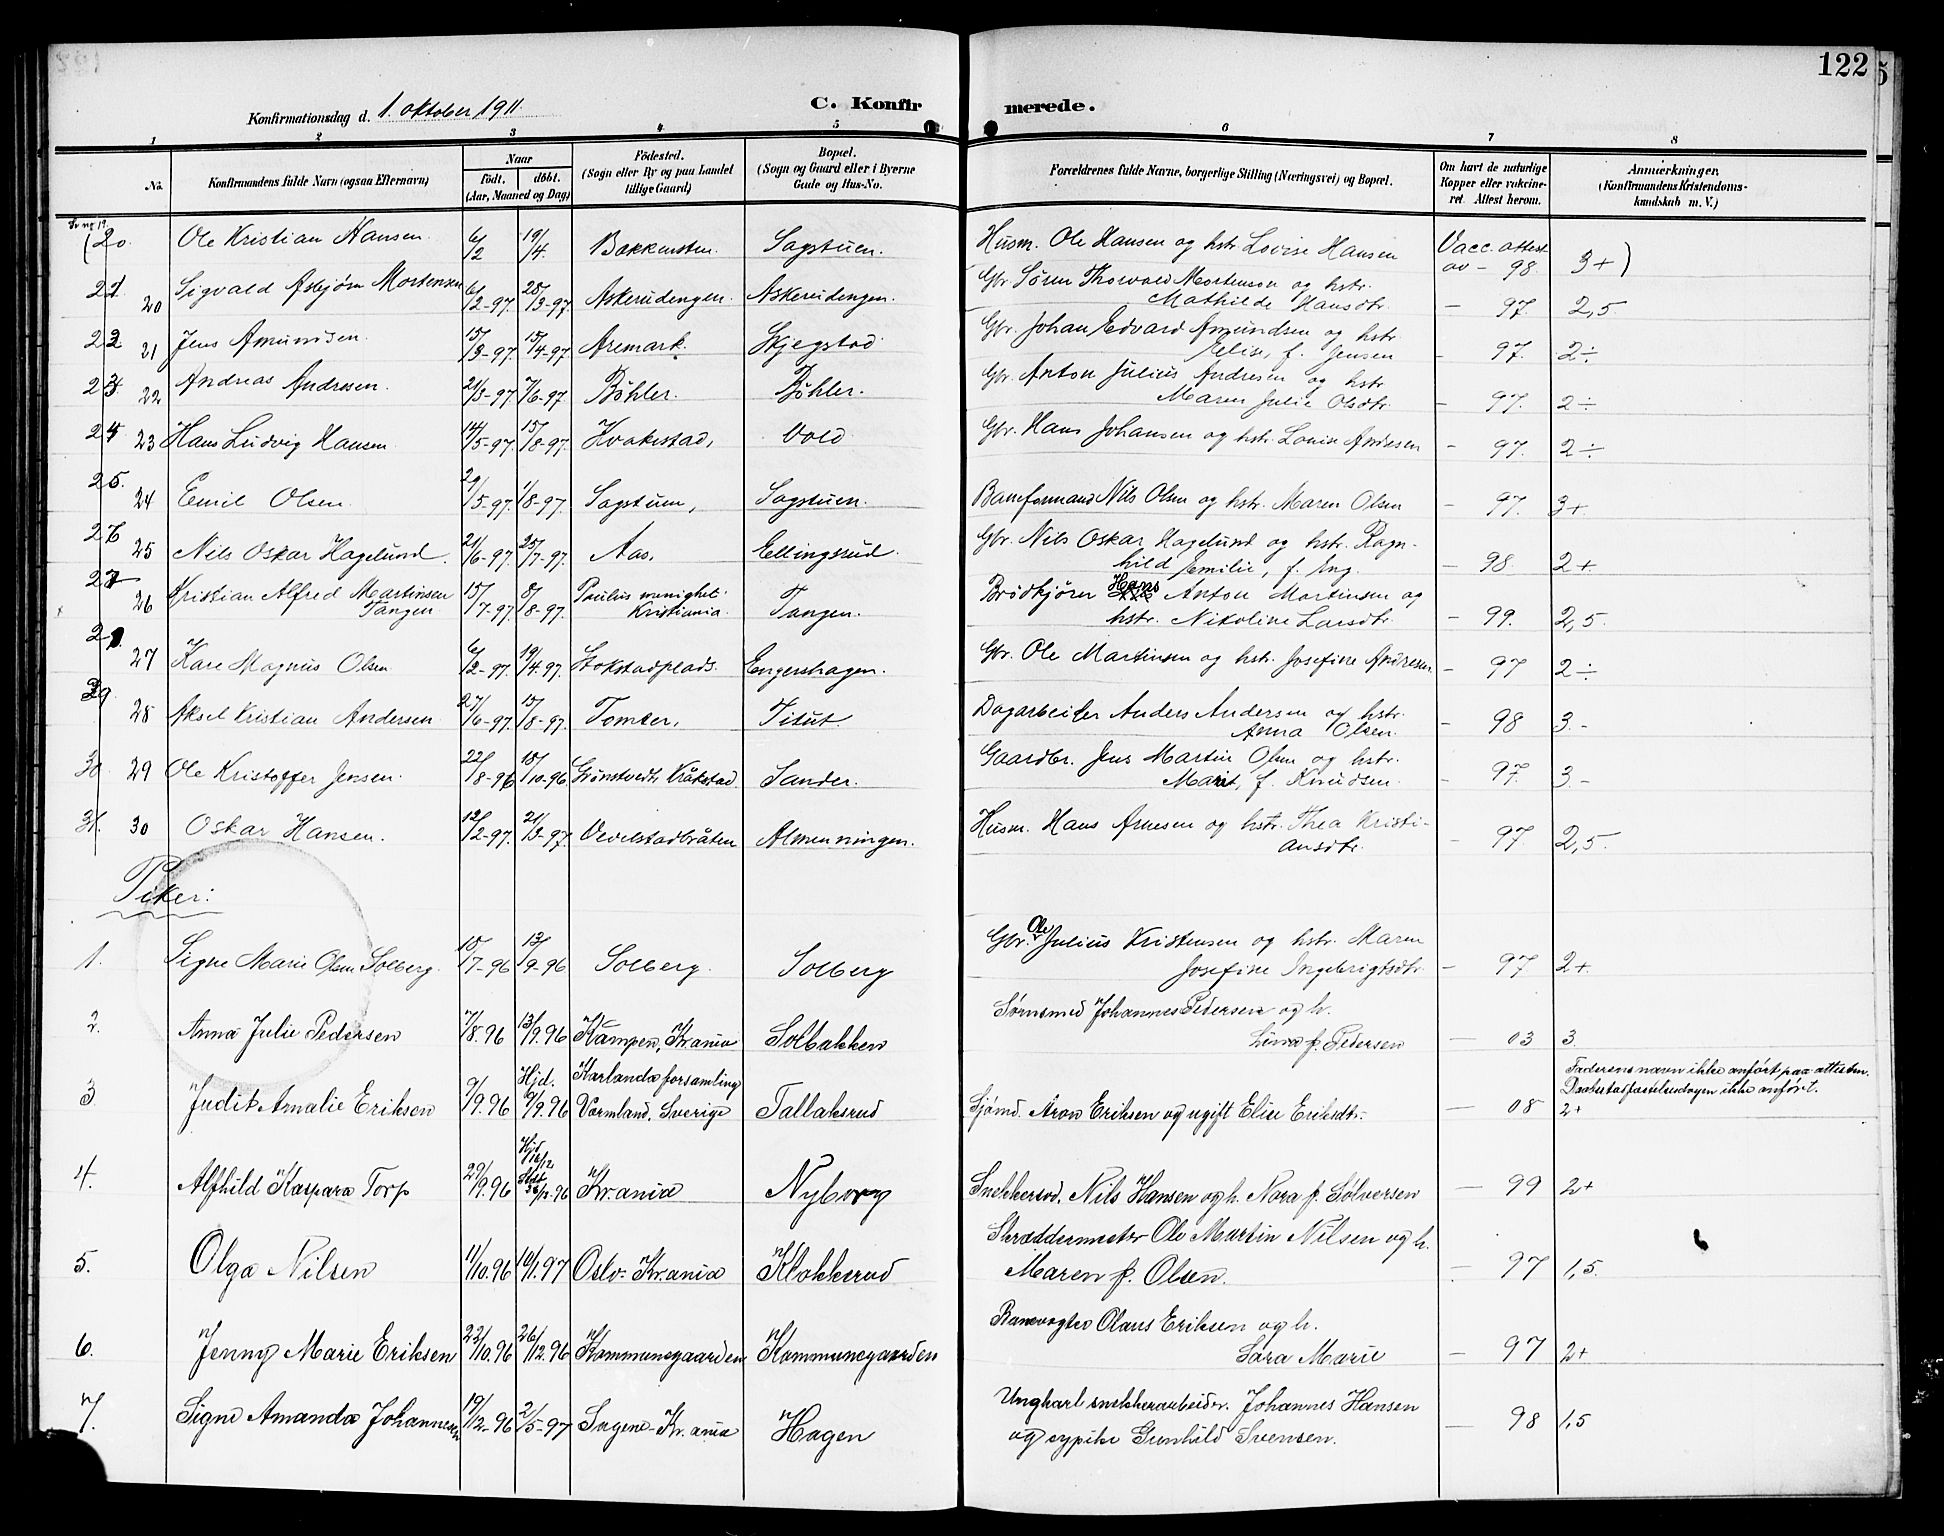 122
Konfirmationsdag d. 1. oktober 1911.
C. Konfirmerede.
1 2 3 4 5 6 7 8
No. Konfirmandens fulde Navn (ogsaa Efternavn) Naar Födt. döbt. (Aar, Maaned og Dag) Födested. (Sogn eller By og paa Landet tillige Gaard) Bopæl. (Sogn og Gaard eller i Byerne Gade og Hus-No. Forældrenes fulde Navne, borgerlige Stilling (Næringsvei) og Bopæl. Om havt de naturlige Kopper eller vakcineret. Attest herom. Anmærkninger. (Konfirmandens Kristendomskundskab m. V.)
(20. Ole Kristian Hansen. 6/2 19/4. Bakkensten. Sagstuen. Husm. Ole Hansen og hstr. Lovise Hansen Vacc. attest av - 98. 3+)
21 20 Sigvald Asbjørn Mortensen 6/2-97. 28/3-97. Askerudengen. Askerudengen. Gbr. Søren Thorvald Mortensen og hstr. Mathilde Hansdtr. - 97. 2,5.
22 21 Jens Amundsen. 15/3-97. 15/4-97. Aremark. Skjegstad. Gbr. Johan Edvard Amundsen og hstr. Elise, f. Jensen - 97. 2÷
23. 22 Andreas Andresen. 21/3-97. 7/6-97. Bøhler. Bøhler. Gbr. Anton Julius Andresen og hstr. Maren Julie Olsdtr. - 97. 2÷
24 23 Hans Ludvig Hansen. 14/5-97. 15/8-97. Kvakestad, Vold Gbr. Hans Johansen og hstr. Lovise Andresen - 97. 2÷
25. 24 Emil Olsen. 29/5-97. 1/8-97. Sagstuen, Sagstuen. Baneformand Nils Olsen og hstr. Maren Olsen - 97. 3+.
26 25 Nils Oskar Hagelund. 21/6-97. 25/7-97. Aas. Ellingsrud. Gbr. Nils Oskar Hagelund og hstr. Ragnhild Emilie, f. Eng. - 98. 2+.
27 26 Kristian Alfred Martinsen Tangen. 15/7-97. 8/8-97. Paulus menighet. Kristiania. Tangen. Brødkjører Hans Anton Martinsen og hstr. Nikoline Larsdtr. - 99. 2,5.
27 Kare Magnus Olsen 6/2-97. 19/4.97. Stokstadplads. Engershagen. Gbr. Ole Martinsen og hstr. Josefine Andresen - 97 2÷
29. 28 Aksel Kristian Andersen. 27/6-97. 15/8-97. Tomter. Titut. Dagarbeider Anders Andersen og hstr. Anna Olsen. - 98 3.-
30. 29 Ole Kristoffer Jensen. 22/8-96 18/10.96. Grønstvedt, Kråkstad Sander. Gaardbr. Jens Martin Olsen og hstr. Marit, f. Knudsen. - 97. 3.-
31. 30 Oskar Hansen. 12/2-97. 21/3-97. Vevelstadbråten Almenningen. Husm. Hans Arnesen og hstr. Thea Kristiansdtr. - 97. 2,5.
Piker:
1. Signe Marie Olsen Solberg. 10/7-96 13/9-96 Solberg. Solberg Gbr. Ole Julius Kristensen og hstr. Maren Josefine Ingebrigtsdtr. - 97 2+.
2. Anna Julie Pedersen 7/8.96 13/9.96 Kampen, Kr.ania Solbakken Johannes Pedersen og h. Lina f. Pedersen - 03 3.
3. Judit Amalie Eriksen 9/9.96 Hjd. 9/9.96 Karlanda forsamling Varmland, Sverige Tallaksrud Sjømd. Aron Eriksen og ugift Elise Eriksdtr. - 08 Faderens navn ikke anført paa attesten. ikke anført. 2+
4. Alfhild Kaspara Torp 29/9.96 Hjd 16/12 Kr.ania Nyborg Snekkersv. Nils Hansen og h. Nora f. Sølversen - 99 2+
5. Olga Nilsen 11/10.96 10/1.97 Oslo. Kr.ania Klokkerud Skræddermester Ole Martin Nilsen og h. Maren f. Olsen. - 97 1,5.
6. Jenny Marie Eriksen 22/10.96 26/12.96 Kommunegaarden Kommunegaarden Banevogter Olaus Eriksen og h. Sara Marie - 97 2+
7. Signe Amanda Johannesen 19/12-96 2/5-97 Sagene-Kr.ania Hagen Ungkarl snekkerarbeider. Johannes Hansen og sypike Gunhild Svensen. - 98 1,5